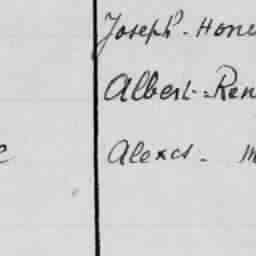 Joseph - Hono
Albert - Ren
e Alexis - M